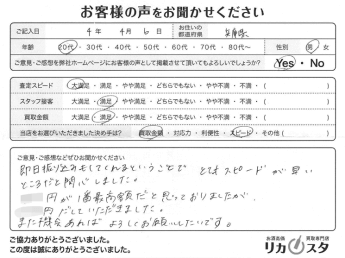 お客様の声をお聞かせください
ご記入日 4 年 4 月 6 日 お住いの都道府県 兵庫県
年齢 20代・30代・40代・50代・60代・70代・80代〜 性別 男・女
ご意見・ご感想を弊社ホームページにお客様の声として掲載させて頂いてもよろしいでしょうか? Yes・No
査定スピード 大満足・満足・やや満足・どちらでもない・やや不満・不満・( )
スタッフ接客 大満足・満足・やや満足・どちらでもない・やや不満・不満・( )
買取金額 大満足・満足・やや満足・どちらでもない・やや不満・不満・( )
当店をお選びいただきました決め手は? 買取金額・対応力・利便性・スピード・その他( )
ご意見・ご感想などぜひお聞かせください
即日振り込みもしてくれるということで とてもスピードが早い
ところだと関心しました。
円が1番最高額だと思っておりましたが、
円だしていただきました。
また機会あれば よろしくお願いしたいです。
ご協力ありがとうございました。
この度は誠にありがとうございました。
お酒高価買取専門店
リカスタ